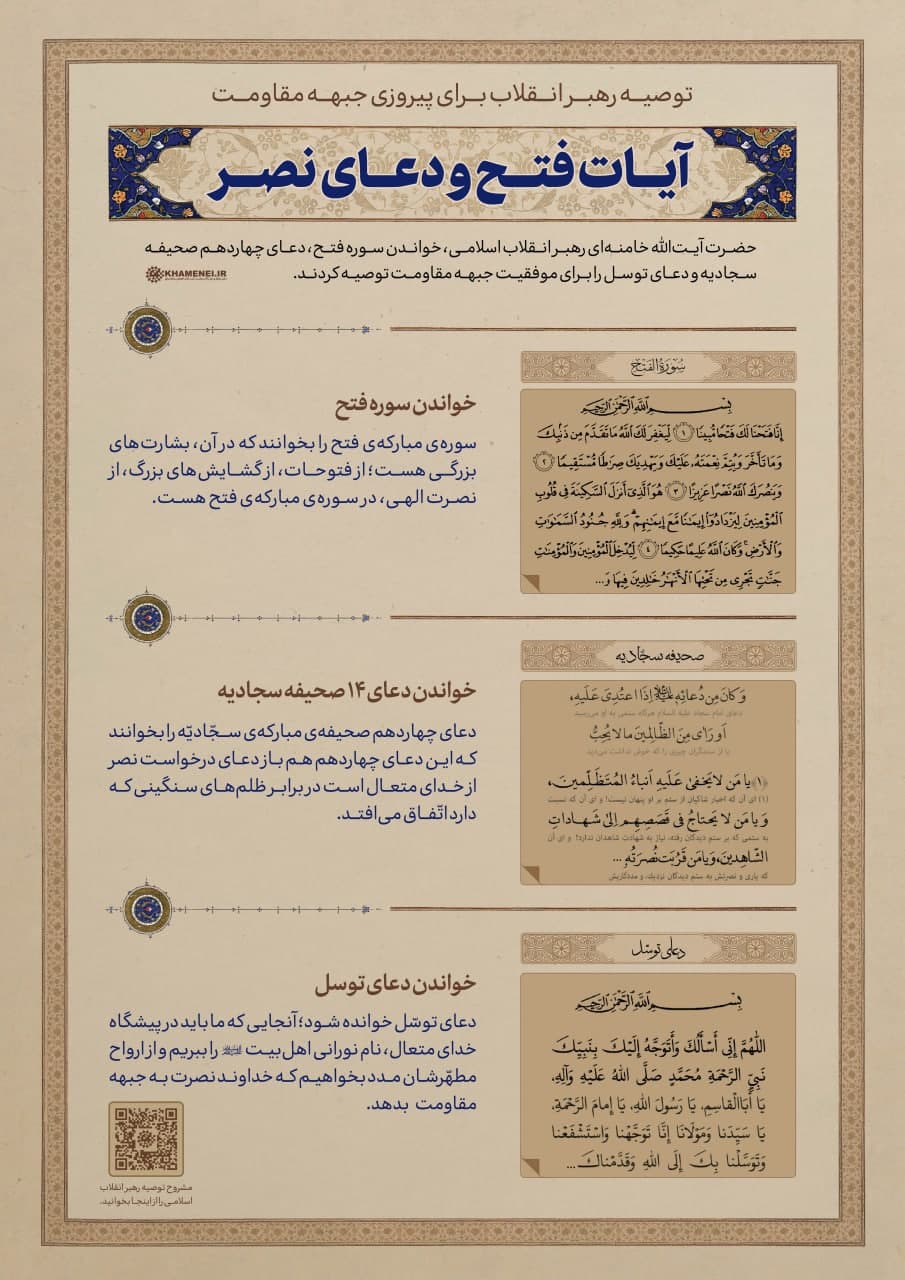 توصیه رهبر انقلاب برای پیروزی جبهه مقاومت
آیات فتح و دعای نصر
حضرت آیت‌الله خامنه‌ای رهبر انقلاب اسلامی، خواندن سوره فتح، دعای چهاردهم صحیفه
سجادیه و دعای توسل را برای موفقیت جبهه مقاومت توصیه کردند.
KHAMENEI.IR
سُورَةُ الفَتْح
بِسْمِ اللَّهِ الرَّحْمَٰنِ الرَّحِيمِ
إِنَّا فَتَحْنَا لَكَ فَتْحًا مُّبِينًا ١ لِّيَغْفِرَ لَكَ اللَّهُ مَا تَقَدَّمَ مِن ذَنۢبِكَ
وَمَا تَأَخَّرَ وَيُتِمَّ نِعْمَتَهُۥ عَلَيْكَ وَيَهْدِيَكَ صِرَٰطًا مُّسْتَقِيمًا ٢
وَيَنصُرَكَ اللَّهُ نَصْرًا عَزِيزًا ٣ هُوَ الَّذِىٓ أَنزَلَ السَّكِينَةَ فِى قُلُوبِ
الْمُؤْمِنِينَ لِيَزْدَادُوٓا۟ إِيمَٰنًا مَّعَ إِيمَٰنِهِمْ ۗ وَلِلَّهِ جُنُودُ السَّمَٰوَٰتِ
وَالْأَرْضِ ۚ وَكَانَ اللَّهُ عَلِيمًا حَكِيمًا ٤ لِّيُدْخِلَ الْمُؤْمِنِينَ وَالْمُؤْمِنَٰتِ
جَنَّٰتٍ تَجْرِى مِن تَحْتِهَا الْأَنْهَٰرُ خَٰلِدِينَ فِيهَا وَ...
خواندن سوره فتح
سوره‌ی مبارکه‌ی فتح را بخوانند که در آن، بشارت‌های
بزرگی هست؛ از فتوحات، از گشایش‌های بزرگ، از
نصرت الهی، در سوره‌ی مبارکه‌ی فتح هست.
صحیفه سجّادیه
وَ كَانَ مِن دُعائِهِ عَلَيْهِ السَّلامُ إِذَا اعتُدِىَ عَلَيهِ،
دعای امام سجاد علیه السلام هرگاه ستمی به او می‌رسید
أَو رَأى مِنَ الظّالِمينَ ما لا يُحِبُّ
یا از ستمگران چیزی را که خوش نداشت می‌دید
﴿١﴾ يا مَن لا يَخفىٰ عَلَيهِ أَنباءُ المُتَظَلِّمينَ،
(۱) ای آن که اخبار شاکیان از ستم بر او پنهان نیست! و ای آن که نسبت
وَ يا مَن لا يَحتاجُ فى قَصَصِهِم إِلىٰ شَهاداتِ
به ستمی که بر ستم دیدگان رفته، نیاز به شهادت شاهدان ندارد! و ای آن
الشّاهِدينَ، وَ يا مَن قَرُبَت نُصرَتُهُ ...
که یاری و نصرتش به ستم دیدگان نزدیک، و مددکاریش
خواندن دعای ۱۴ صحیفه سجادیه
دعای چهاردهم صحیفه‌ی مبارکه‌ی سجّادیّه را بخوانند
که این دعای چهاردهم هم باز دعای درخواست نصر
از خدای متعال است در برابر ظلم‌های سنگینی که
دارد اتّفاق می‌افتد.
دعای توسل
بِسْمِ اللَّهِ الرَّحْمَٰنِ الرَّحِيمِ
اللّٰهُمَّ إِنّى أَسْأَلُكَ وَأَتَوَجَّهُ إِلَيْكَ بِنَبِيِّكَ
نَبِيِّ الرَّحْمَةِ مُحَمَّدٍ صَلَّى اللهُ عَلَيْهِ وَآلِهِ،
يَا أَبَاالْقاسِمِ، يَا رَسُولَ اللهِ، يَا إِمامَ الرَّحْمَةِ،
يَا سَيِّدَنا وَمَوْلَانَا إِنَّا تَوَجَّهْنا وَاسْتَشْفَعْنا
وَتَوَسَّلْنا بِكَ إِلَى اللهِ وَقَدَّمْناكَ...
خواندن دعای توسل
دعای توسّل خوانده شود؛ آنجایی که ما باید در پیشگاه
خدای متعال، نام نورانی اهل‌بیت علیهم‌السلام را ببریم و از ارواح
مطهّرشان مدد بخواهیم که خداوند نصرت به جبهه
مقاومت بدهد.
مشروح توصیه رهبر انقلاب
اسلامی را از اینجا بخوانید.